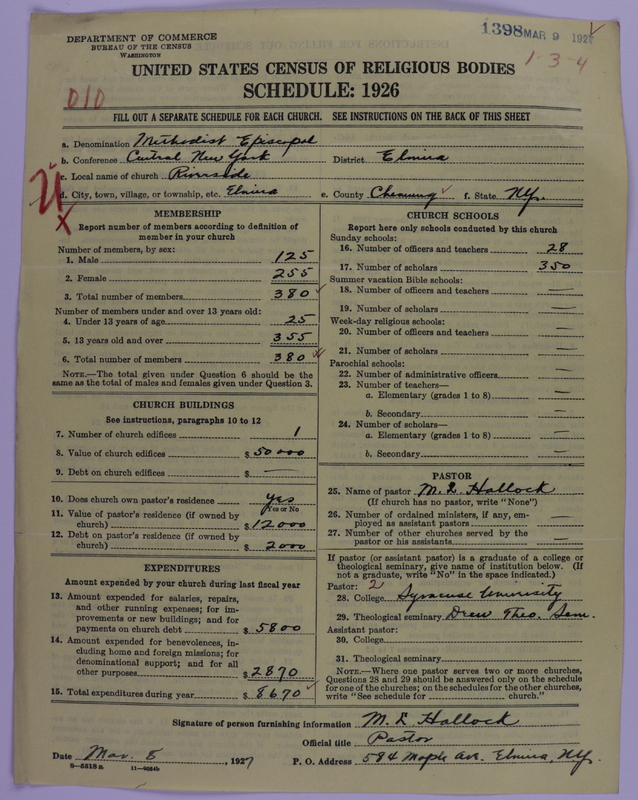 DEPARTMENT OF COMMERCE
BUREAU OF THE CENSUS
WASHINGTON
1398 MAR 9 192
1-3-4
UNITED STATES CENSUS OF RELIGIOUS BODIES
SCHEDULE: 1926
010
FILL OUT A SEPARATE SCHEDULE FOR EACH CHURCH. SEE INSTRUCTIONS ON THE BACK OF THIS SHEET
a. Denomination Methodist Episcopal
b. Conference Central New York District Elmira
c. Local name of church Riverside
d. City, town, village, or township, etc. Elmira e. County Chemung f. State N.Y.
MEMBERSHIP
Report number of members according to definition of
member in your church
Number of members, by sex:
1. Male 125
2. Female 255
3. Total number of members 380
Number of members under and over 13 years old:
4. Under 13 years of age 25
5. 13 years old and over 355
6. Total number of members 380
NOTE.—The total given under Question 6 should be the
same as the total of males and females given under Question 3.
CHURCH BUILDINGS
See instructions, paragraphs 10 to 12
7. Number of church edifices 1
8. Value of church edifices $ 50000
9. Debt on church edifices $ —
10. Does church own pastor's residence yes
Yes or No
11. Value of pastor's residence (if owned by
church) $ 12000
12. Debt on pastor's residence (if owned by
church) $ 2000
EXPENDITURES
Amount expended by your church during last fiscal year
13. Amount expended for salaries, repairs,
and other running expenses; for im-
provements or new buildings; and for
payments on church debt $ 5800
14. Amount expended for benevolences, in-
cluding home and foreign missions; for
denominational support; and for all
other purposes $ 2870
15. Total expenditures during year $ 8670
CHURCH SCHOOLS
Report here only schools conducted by this church
Sunday schools:
16. Number of officers and teachers 28
17. Number of scholars 350
Summer vacation Bible schools:
18. Number of officers and teachers —
19. Number of scholars —
Week-day religious schools:
20. Number of officers and teachers —
21. Number of scholars —
Parochial schools:
22. Number of administrative officers —
23. Number of teachers—
a. Elementary (grades 1 to 8) —
b. Secondary —
24. Number of scholars—
a. Elementary (grades 1 to 8) —
b. Secondary —
PASTOR
25. Name of pastor M. L. Hallock
(If church has no pastor, write "None")
26. Number of ordained ministers, if any, em-
ployed as assistant pastors —
27. Number of other churches served by the
pastor or his assistants —
If pastor (or assistant pastor) is a graduate of a college or
theological seminary, give name of institution below. (If
not a graduate, write "No" in the space indicated.)
Pastor: 2
28. College Syracuse University
29. Theological seminary Drew Theo. Sem.
Assistant pastor:
30. College
31. Theological seminary
NOTE.—Where one pastor serves two or more churches,
Questions 28 and 29 should be answered only on the schedule
for one of the churches; on the schedules for the other churches,
write "See schedule for church."
Signature of person furnishing information M. L. Hallock
Official title Pastor
Date Mar. 8, 1927 P. O. Address 594 Maple Ave. Elmira, N.Y.
8-5518 a 11-9084b